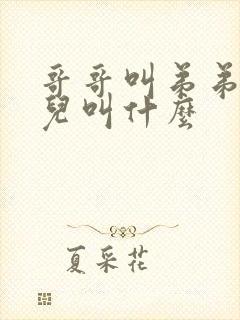 哥哥叫弟弟
兒叫什麼
夏采花